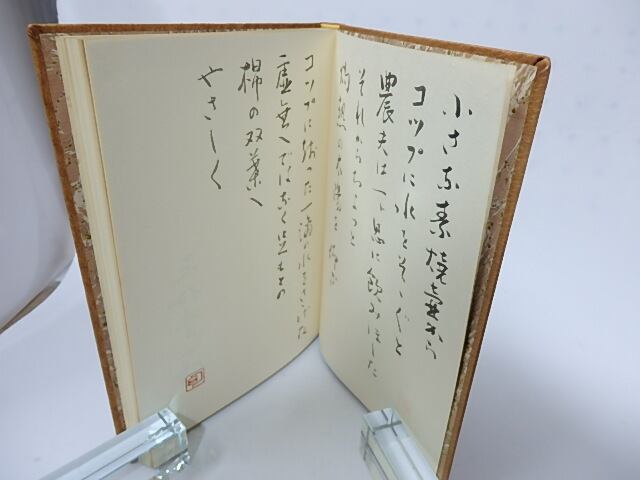 小さな素焼壷から
コップに水をそゝぐと
農夫は一ト息に飲みほした
それからちょっと
灼熱の
コップに残った一滴の水をさげた
虚無へではなく足もとの
棉の双葉へ
やさしく